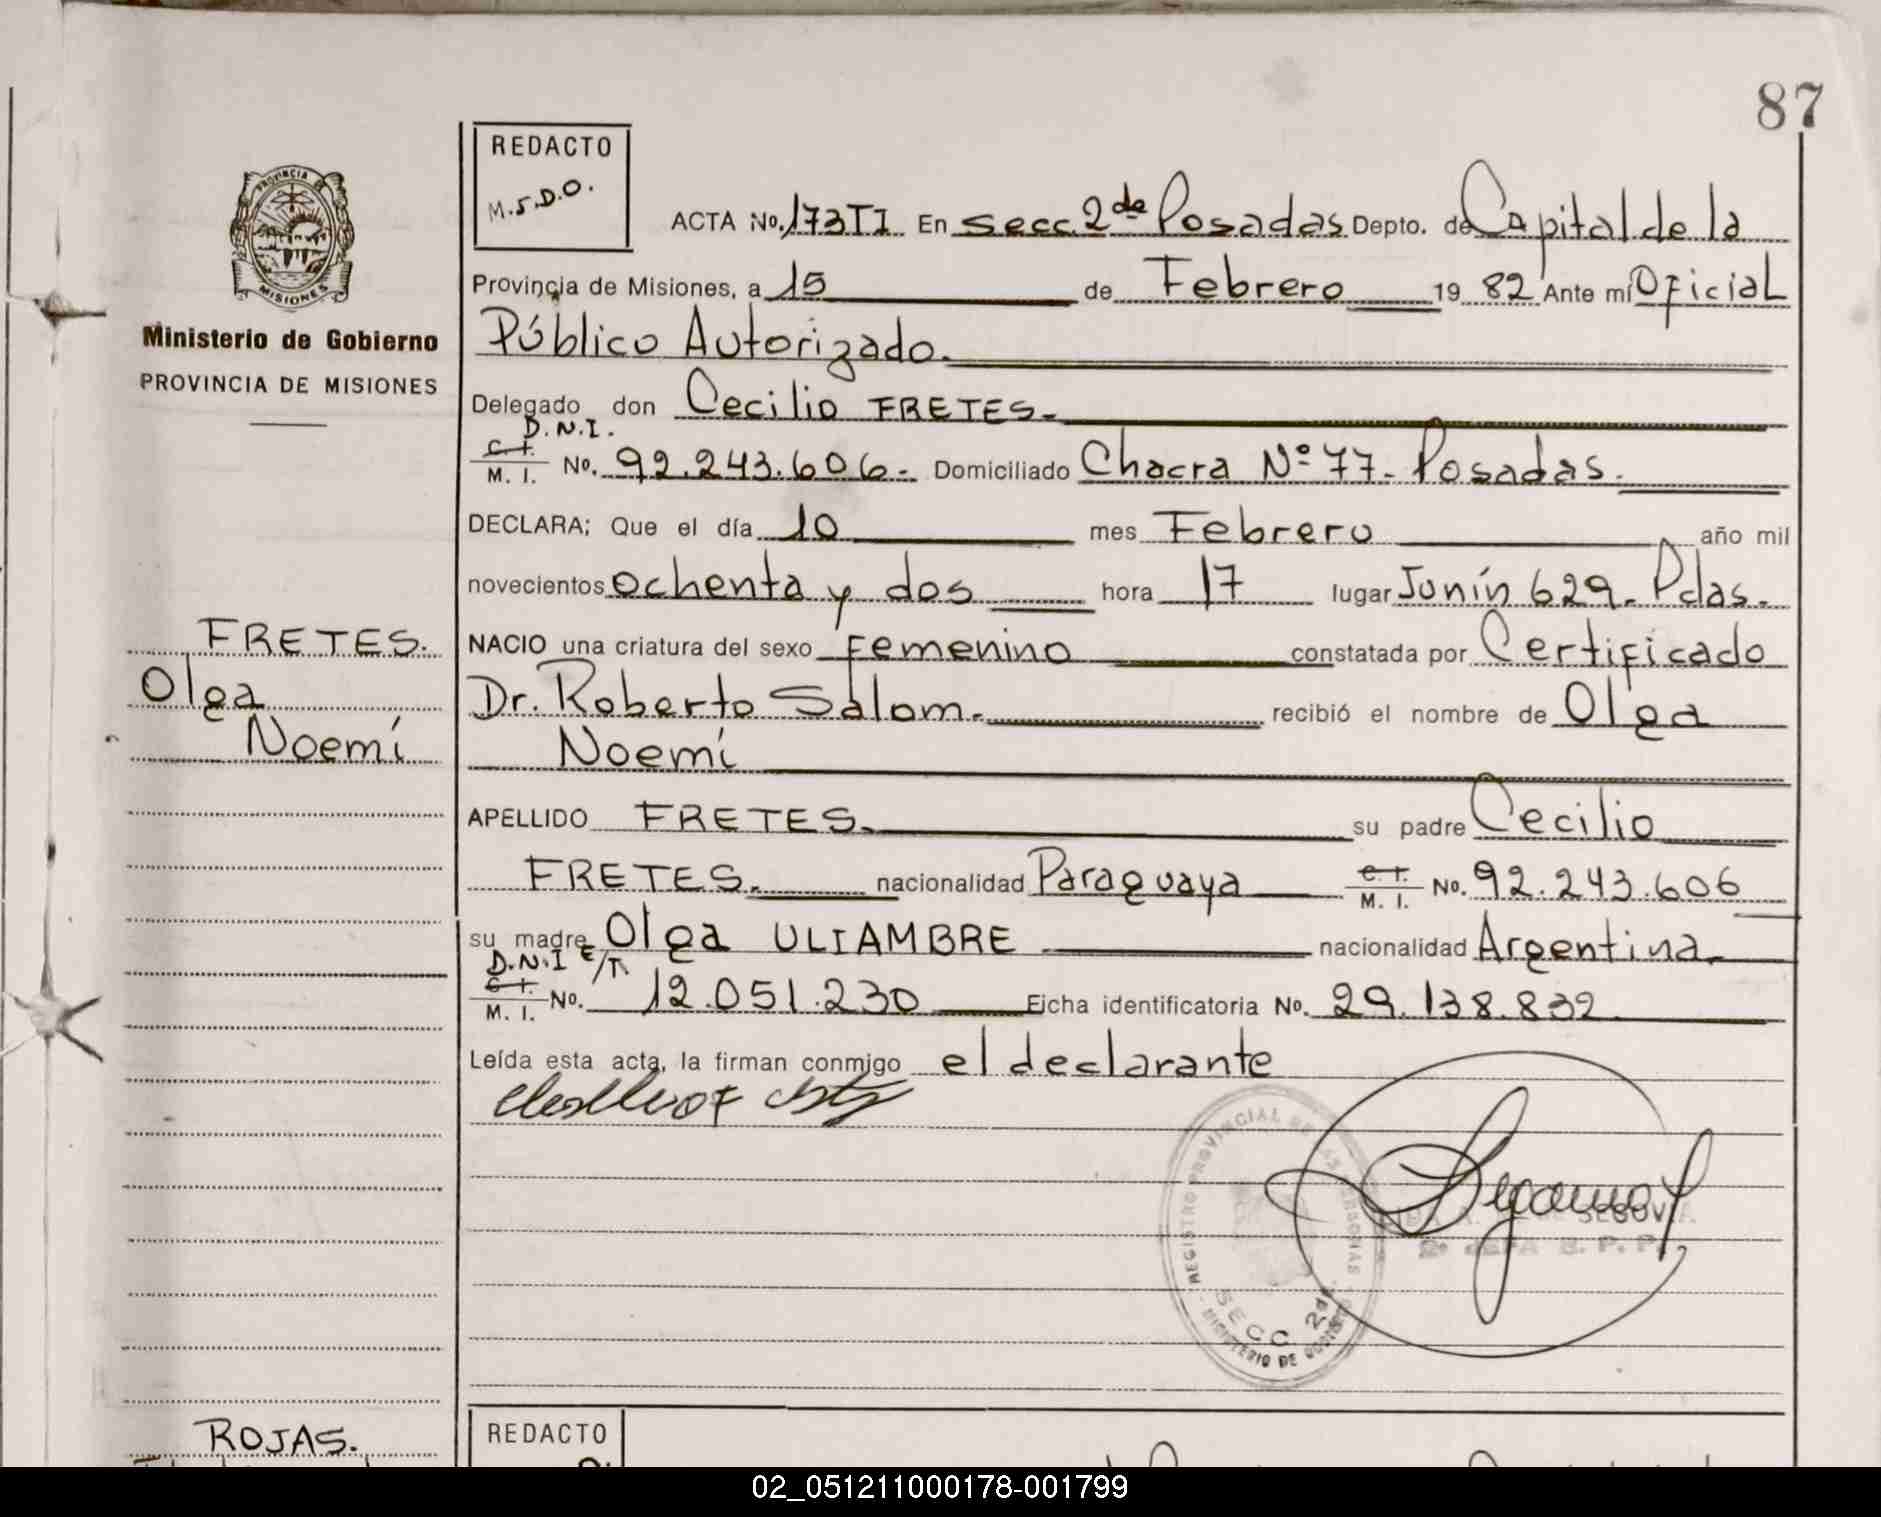 87
REDACTO
M.S.D.O.
PROVINCIA DE
MISIONES
Ministerio de Gobierno
PROVINCIA DE MISIONES
ACTA No. 173TI En secc. 2da Posadas Depto. de Capital de la
Provincia de Misiones, a 15 de Febrero 19 82 Ante mi Oficial
Público Autorizado.
Delegado don Cecilio FRETES.
D.N.I.
C. I.
M. I. No. 92.243.606.- Domiciliado Chacra Nº 77- Posadas.
DECLARA; Que el día 10 mes Febrero año mil
novecientos ochenta y dos hora 17 lugar Junín 629. Pdas.
FRETES.
Olga
Noemí
NACIO una criatura del sexo Femenino constatada por Certificado
Dr. Roberto Salom.- recibió el nombre de Olga
Noemí
APELLIDO FRETES. su padre Cecilio
FRETES. nacionalidad Paraguaya C. I. M. I. No. 92.243.606
su madre Olga ULIAMBRE nacionalidad Argentina.
D.N.I E/T.
C. I.
M. I. No. 12.051.230 Ficha identificatoria No. 29.138.832
Leída esta acta, la firman conmigo el declarante
REGISTRO PROVINCIAL DE LAS PERSONAS
SECC 2da
MINISTERIO DE GOBIERNO
SEGOVIA
2º JEFA
ROJAS.
REDACTO
02_051211000178-001799